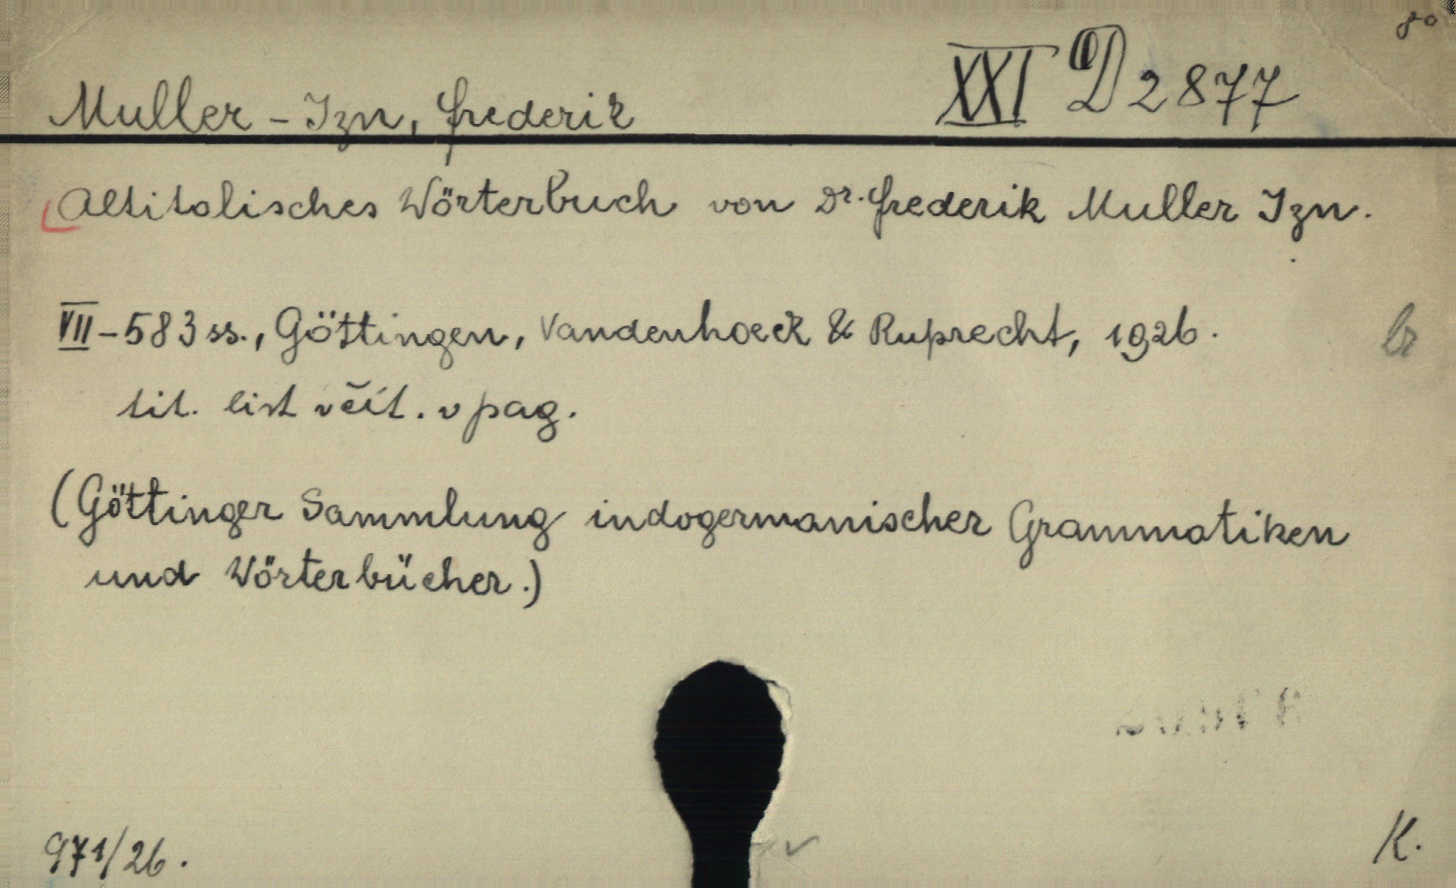 8°
Muller - Izn, Frederik XXI D 2877
Altitalisches Wörterbuch von Dr. Frederik Muller Izn.
VII - 583 ss., Göttingen, Vandenhoeck & Ruprecht, 1926. br
tit. list včít. v pag.
(Göttinger Sammlung indogermanischer Grammatiken
und Wörterbücher.)
971/26. K.